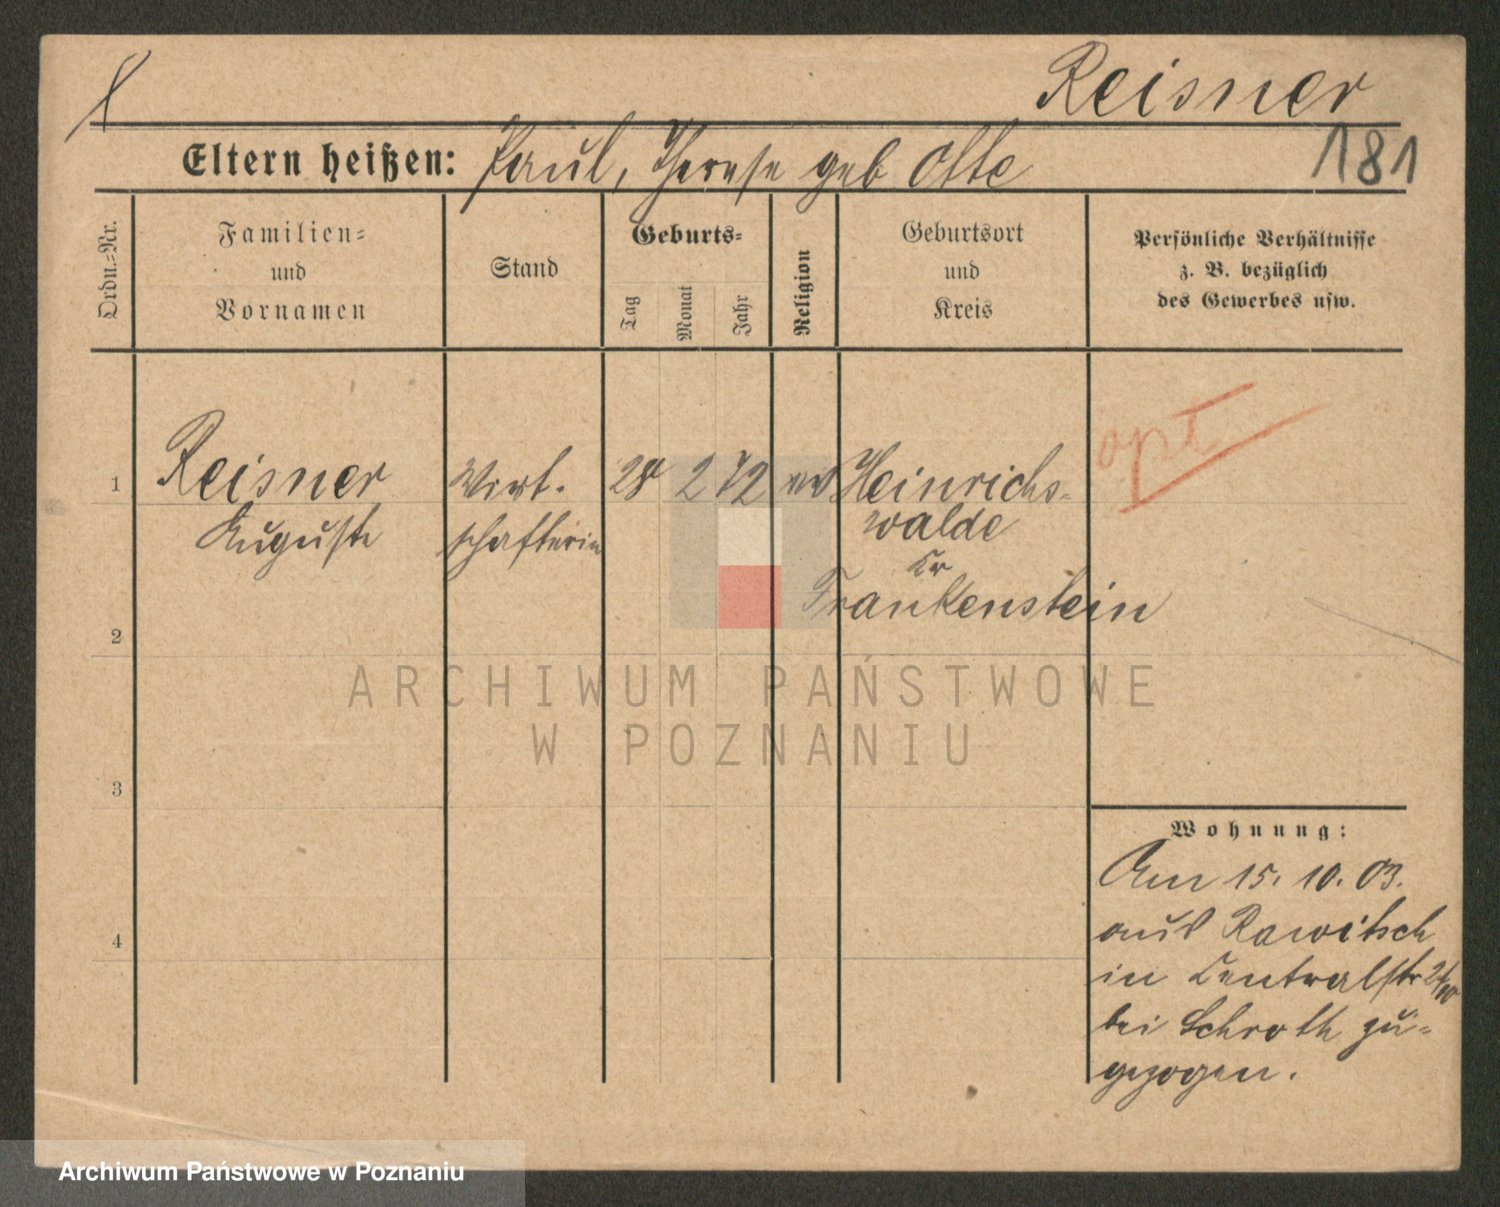 Reisner
Eltern heißen: Paul, Therese geb Otte
181
Ordn.-Nr.
Familien-
und
Vornamen
Stand
Geburts-
Tag
Monat
Jahr
Religion
Geburtsort
und
Kreis
Persönliche Verhältnisse
z. B. bezüglich
des Gewerbes usw.
1
Reisner
Auguste
Wirt-
schafterin
28 2 72
Heinrichs-
walde
Kr
Frankenstein
opt
2
3
4
Wohnung:
Am 15. 10. 03.
aus Rawitsch
in Centralstr
bei Schroth zu-
gezogen.
ARCHIWUM PAŃSTWOWE
W POZNANIU
Archiwum Państwowe w Poznaniu